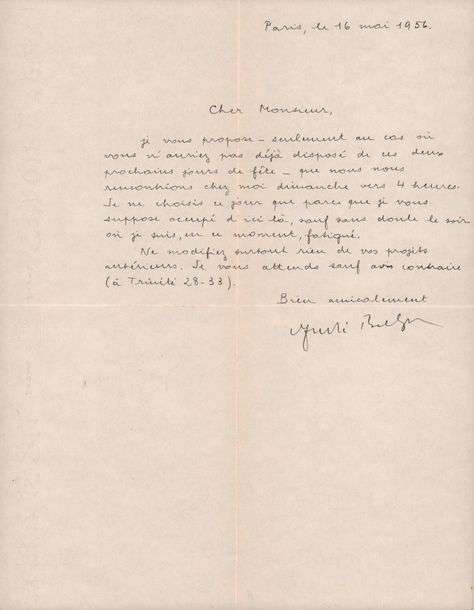 Paris, le 16 mai 1956.
Cher Monsieur,
je vous propose – seulement au cas où
vous n'auriez pas déjà disposé de ces deux
prochains jours de fête – que nous nous
rencontrions chez moi dimanche vers 4 heures.
Je ne choisis ce jour que parce que je vous
suppose occupé d'ici là, sauf sans doute le soir
où je suis, en ce moment, fatigué.
Ne modifiez surtout rien de vos projets
antérieurs. Je vous attends sauf avis contraire
(à Trinité 28-33).
Bien amicalement